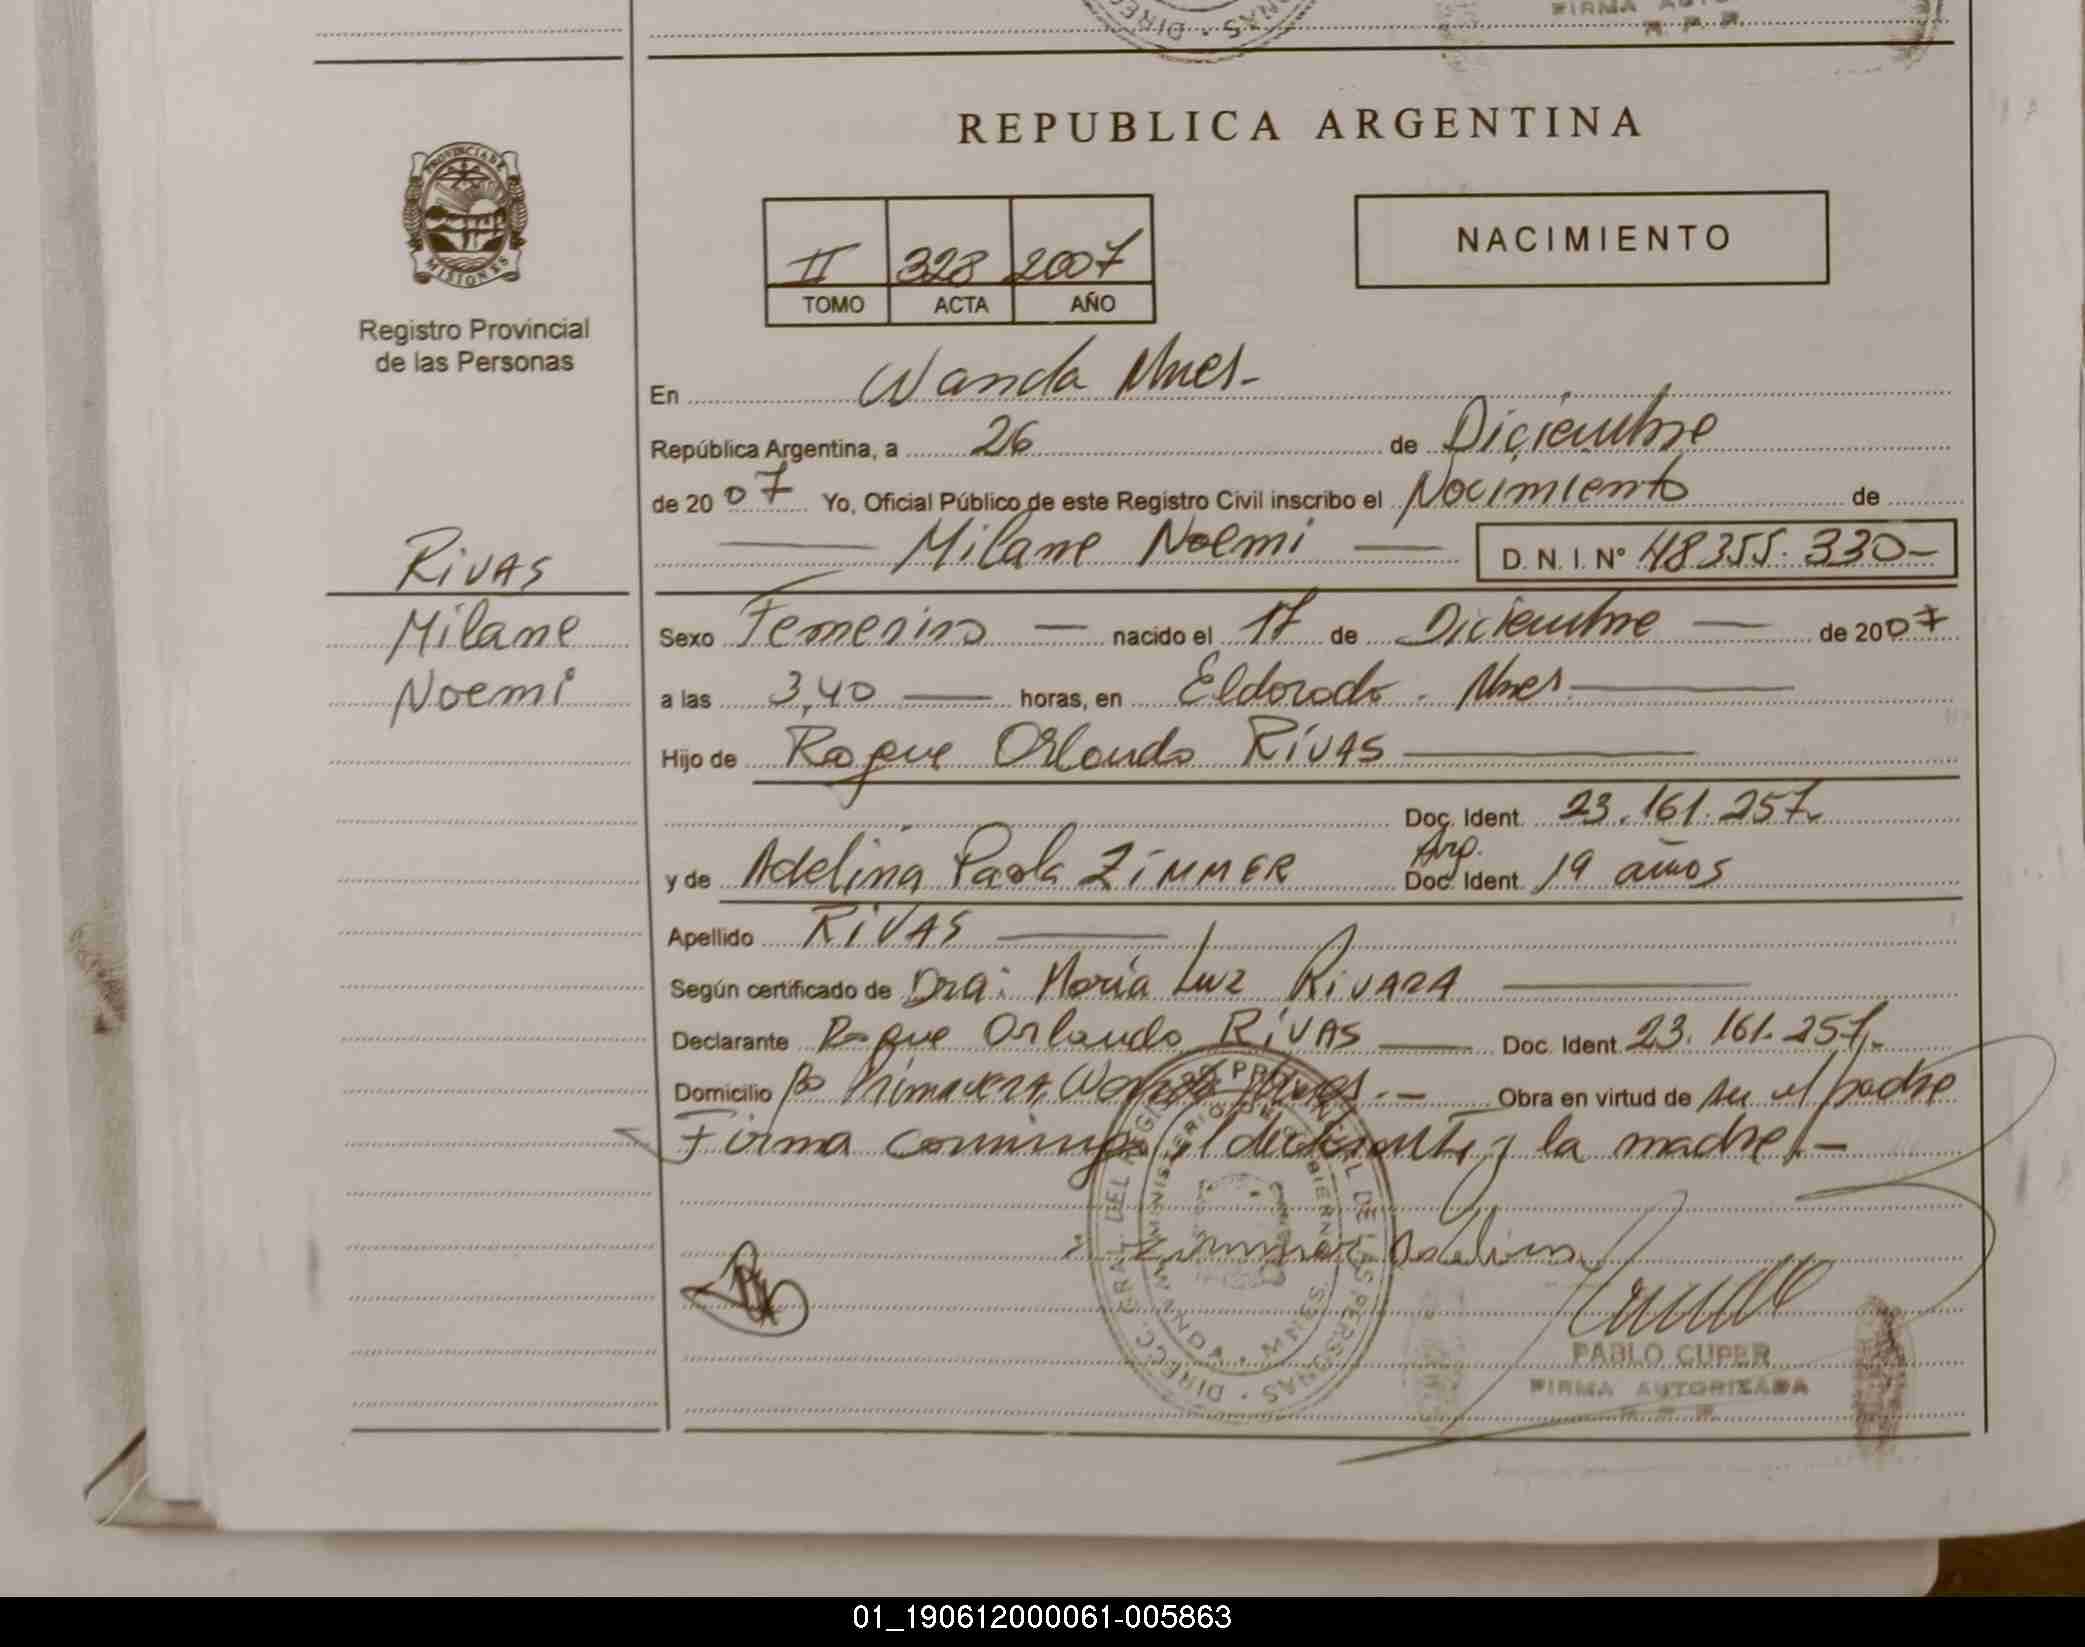 FIRMA
REPUBLICA ARGENTINA
PROVINCIA DE
MISIONES
Registro Provincial
de las Personas
NACIMIENTO
II 328 2007
TOMO ACTA AÑO
En Wanda Mnes-
República Argentina, a 26 de Diciembre
de 2007 Yo, Oficial Público de este Registro Civil inscribo el Nacimiento de
Milane Noemi D. N. I. Nº 48355.330-
RIVAS
Milane
Noemi
Sexo Femenino — nacido el 17 de Diciembre — de 2007
a las 3,40 — horas, en Eldorado. Mnes —
Hijo de Roque Orlando RIVAS —
Doc. Ident. 23.161.257.
Arg.
y de Adelina Paola ZIMMER Doc. Ident. 19 años
Apellido RIVAS —
Según certificado de Dra: María Luz RIVARA —
Declarante Roque Orlando RIVAS — Doc. Ident. 23.161.257.
Domicilio Bº Primavera, Wanda Mnes.- Obra en virtud de ser el padre
Firma conmigo el declarante y la madre.-
Zimmer Adelina
DIRECC. GRAL. DEL REGISTRO PROVINCIAL DE LAS PERSONAS
MINISTERIO DE GOBIERNO
WANDA · MISIONES
PABLO CUPER
FIRMA AUTORIZADA
R P P
01_190612000061-005863